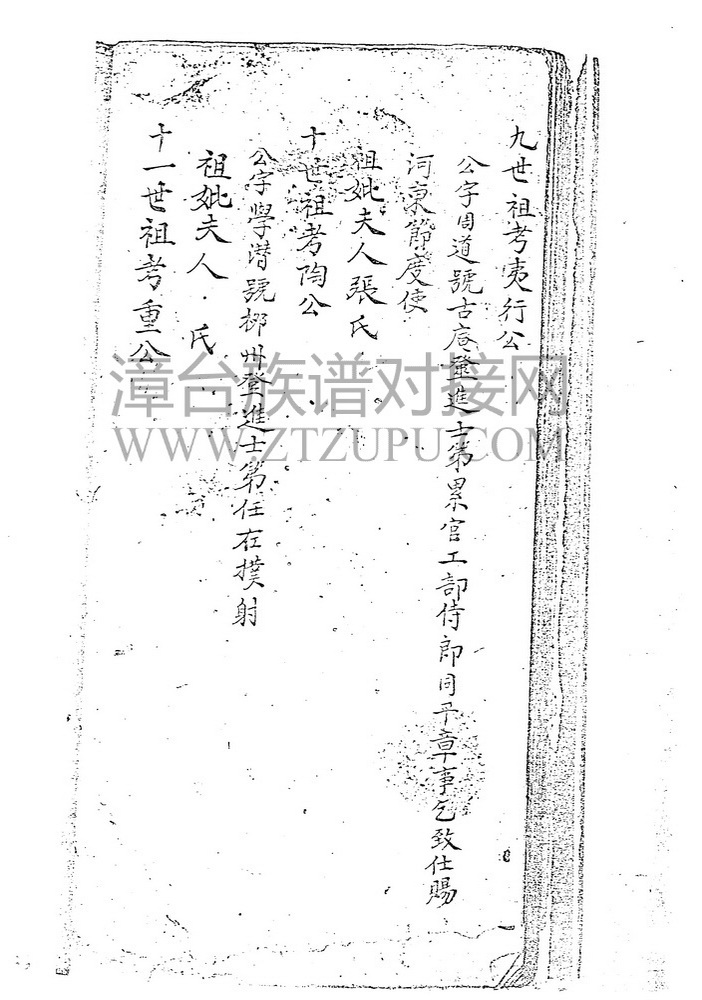 九世祖考夷行公
公字周道號古启登進士第累官工部侍郎同平章事乞致仕賜
河東節度使
祖妣夫人張氏
十世祖考陶公
公字學潛號柳州登進士第任右撲射
祖妣夫人 氏
十一世祖考重公
漳台族谱对接网
WWW.ZTZUPU.COM